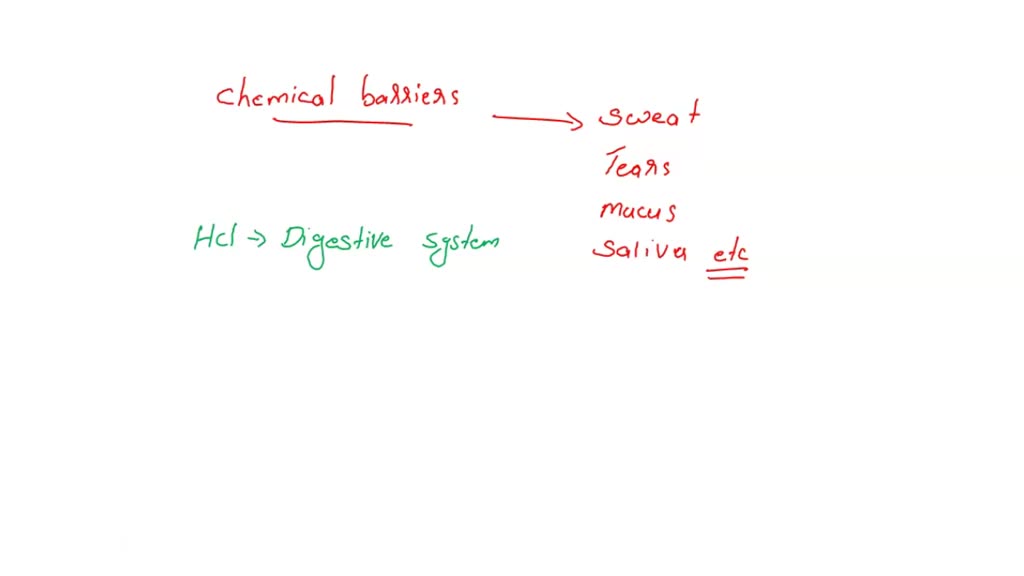 Chemical barriers → Sweat
Tears
Mucus
Saliva etc
Hcl → Digestive system